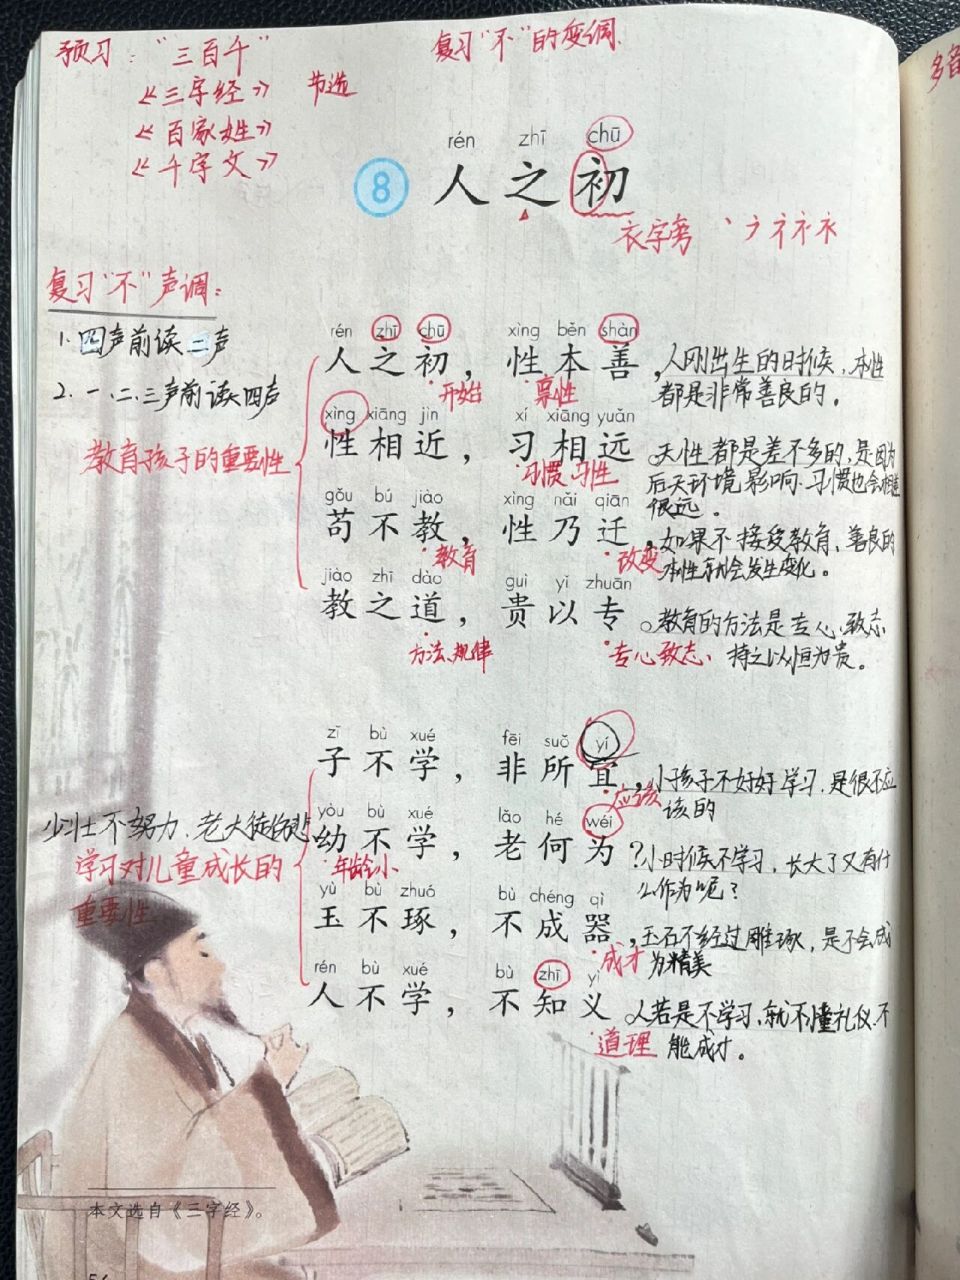 预习："三百千"
复习"不"的变调
《三字经》 节选
《百家姓》
《千字文》
rén zhī chū
8 人之初
衣字旁 丶 ㇇ 衤 衤 衤
复习"不"声调：
1. 四声前读二声
2. 一、二、三声前读四声
rén zhī chū xìng běn shàn
人之初，性本善，
人刚出生的时候，本性
都是非常善良的。
开始 禀性
教育孩子的重要性
xìng xiāng jìn xí xiāng yuǎn
性相近，习相远。
天性都是差不多的，是因为
后天环境影响、习惯也会相差
很远。
习惯、习性
gǒu bú jiào xìng nǎi qiān
苟不教，性乃迁，
如果不接受教育，善良的
本性就会发生变化。
教育 改变
jiào zhī dào guì yǐ zhuān
教之道，贵以专。
教育的方法是专心致志、
持之以恒为贵。
方法、规律 专心致志
zǐ bù xué fēi suǒ yí
子不学，非所宜，
小孩子不好好学习，是很不应
该的
应该
少壮不努力，老大徒伤悲
yòu bù xué lǎo hé wéi
幼不学，老何为？
小时候不学习，长大了又有什
么作为呢？
年龄小
学习对儿童成长的
重要性
yù bù zhuó bù chéng qì
玉不琢，不成器，
玉石不经过雕琢，是不会成
为精美
成才
rén bù xué bù zhī yì
人不学，不知义。
人若是不学习，就不懂礼仪，不
能成才。
道理
本文选自《三字经》。